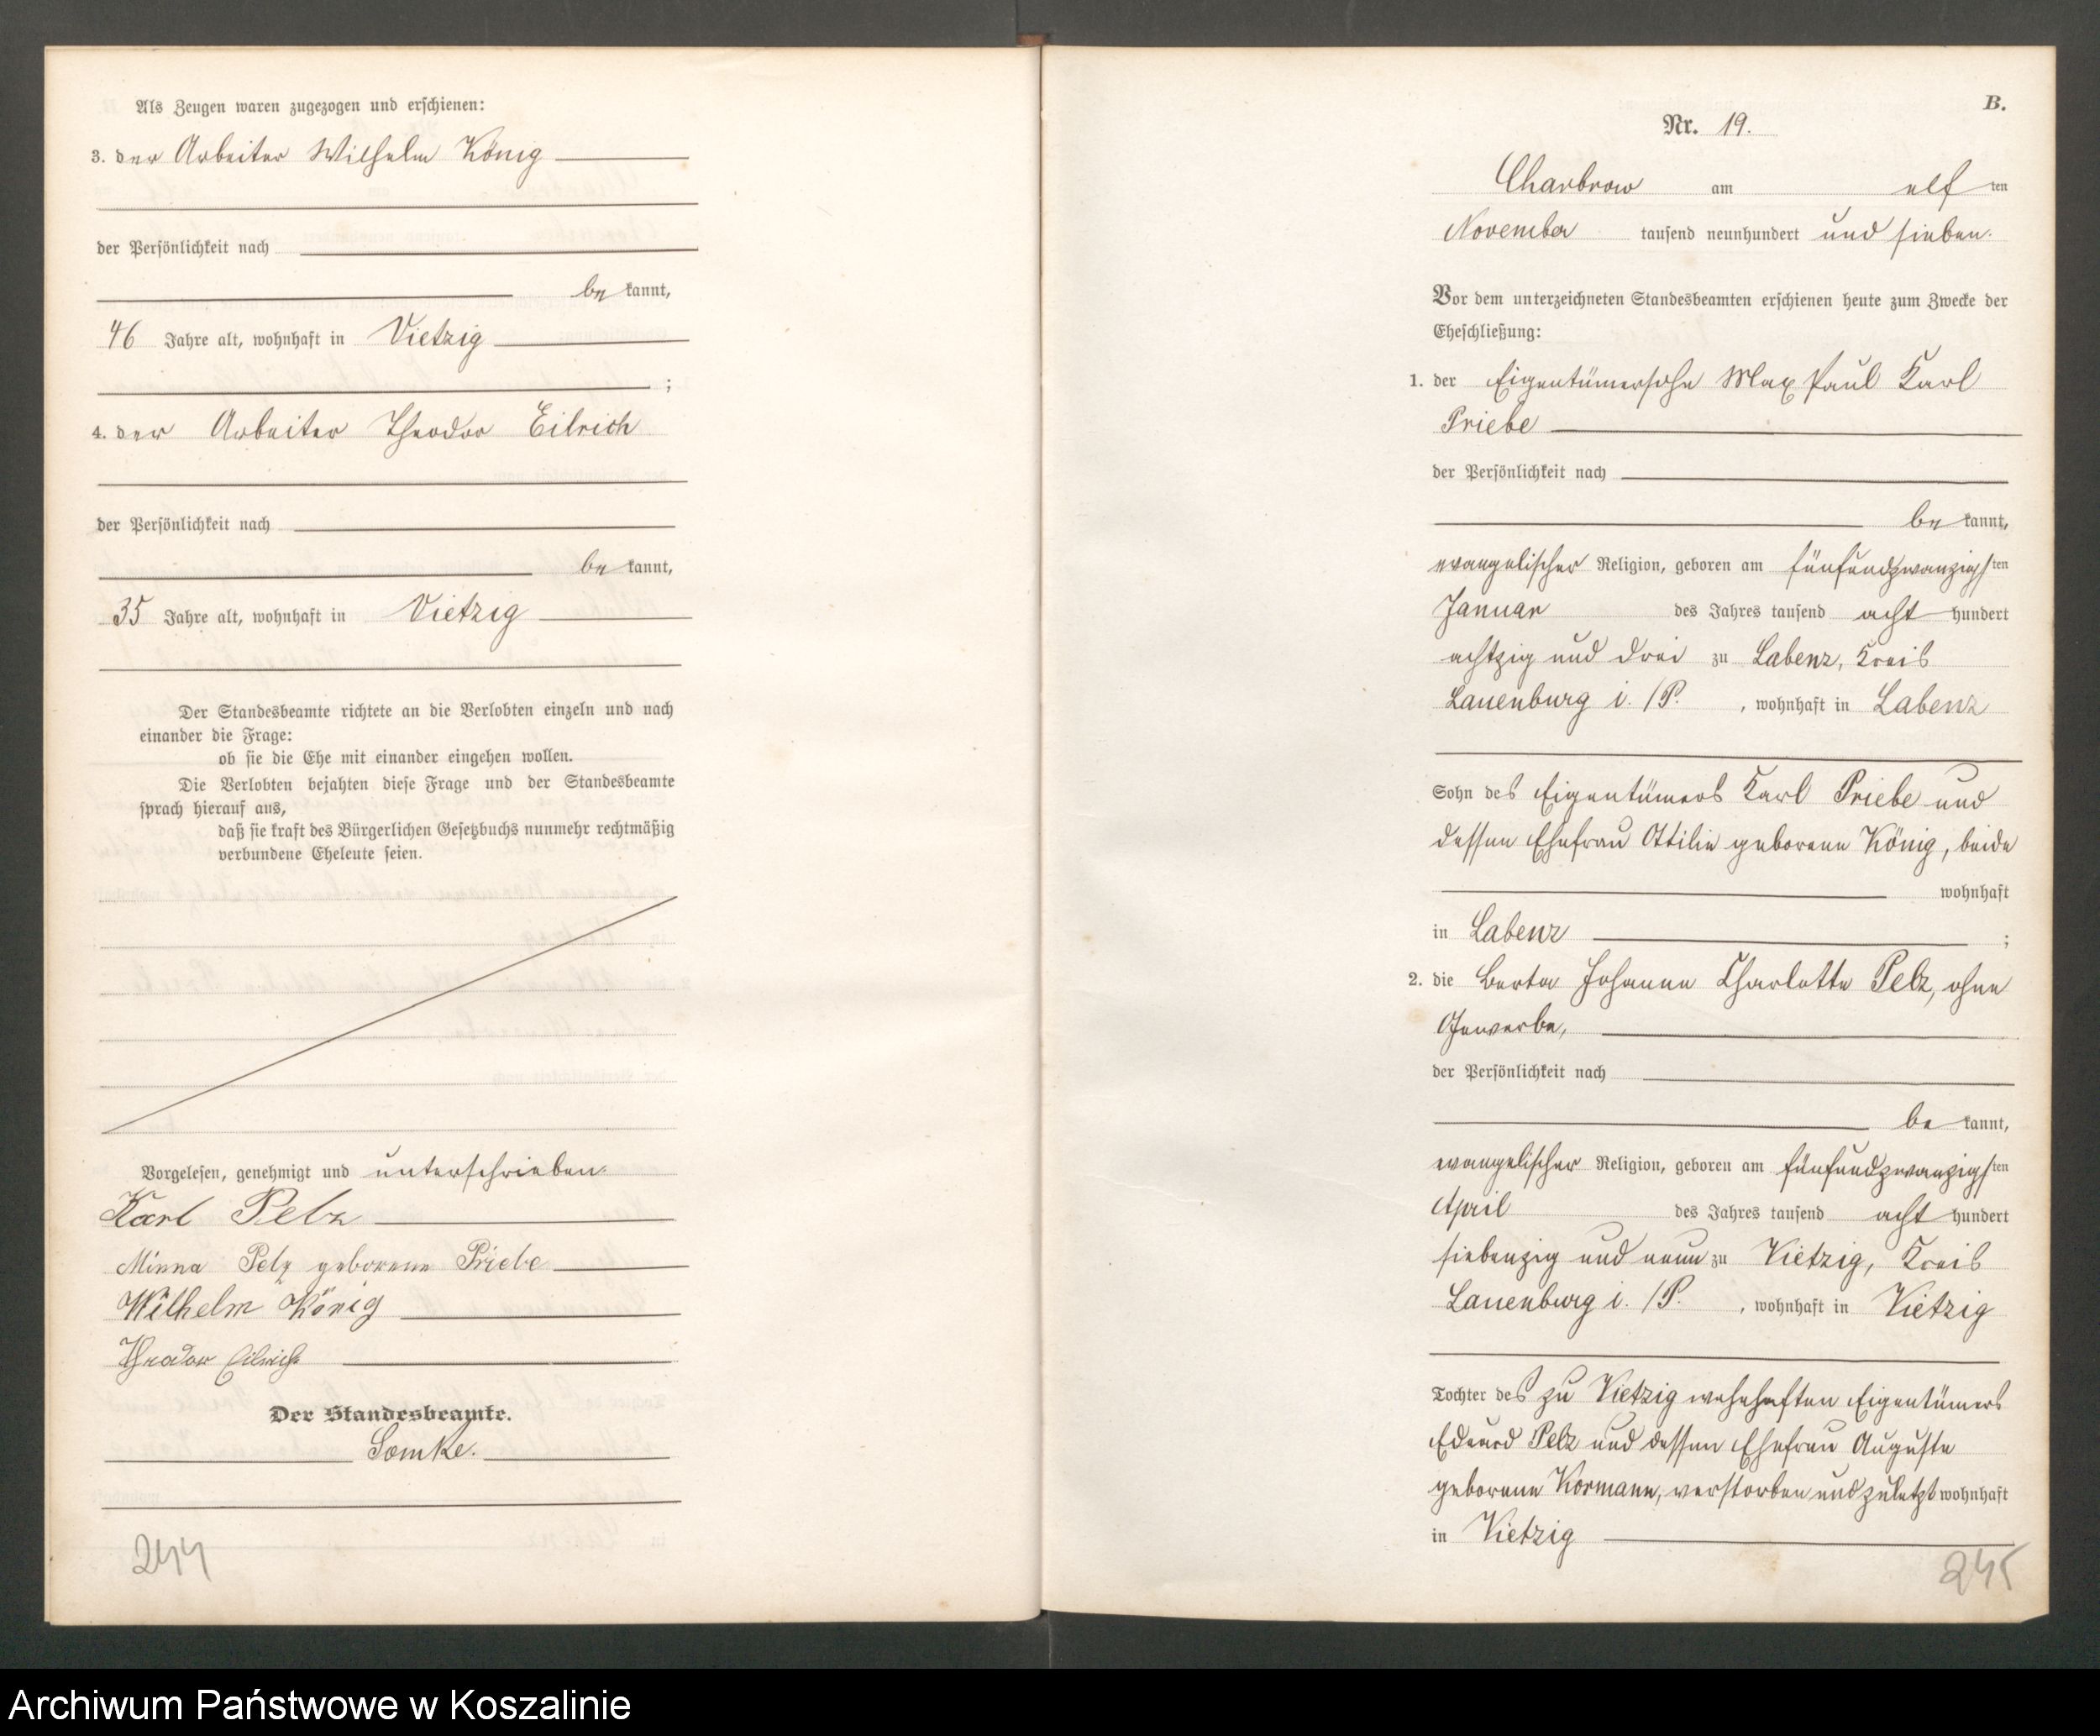 Als Zeugen waren zugezogen und erschienen:
3. der Arbeiter Wilhelm König
der Persönlichkeit nach
be kannt,
46 Jahre alt, wohnhaft in Vietzig
;
4. der Arbeiter Theodor Eilrich
der Persönlichkeit nach
be kannt,
35 Jahre alt, wohnhaft in Vietzig
Der Standesbeamte richtete an die Verlobten einzeln und nach
einander die Frage:
ob sie die Ehe mit einander eingehen wollen.
Die Verlobten bejahten diese Frage und der Standesbeamte
sprach hierauf aus,
daß sie kraft des Bürgerlichen Gesetzbuchs nunmehr rechtmäßig
verbundene Eheleute seien.
Vorgelesen, genehmigt und unterschrieben.
Karl Pelz
Minna Pelz geborene Priebe
Wilhelm König
Theodor Eilrich
Der Standesbeamte.
Lemke.
244
B.
Nr. 19.
Charbrow am elf ten
November tausend neunhundert und sieben.
Vor dem unterzeichneten Standesbeamten erschienen heute zum Zwecke der
Eheschließung:
1. der Eigentümersohn Max Paul Karl
Priebe
der Persönlichkeit nach
be kannt,
evangelischer Religion, geboren am fünfundzwanzigsten
Januar des Jahres tausend acht hundert
achtzig und drei zu Labenz, Kreis
Lauenburg i. /P. , wohnhaft in Labenz
Sohn des Eigentümers Karl Priebe und
dessen Ehefrau Ottilie geborene König, beide
wohnhaft
in Labenz ;
2. die Berta Johanne Charlotte Pelz, ohne
Gewerbe,
der Persönlichkeit nach
be kannt,
evangelischer Religion, geboren am fünfundzwanzigsten
April des Jahres tausend acht hundert
siebenzig und neun zu Vietzig, Kreis
Lauenburg i. /P. , wohnhaft in Vietzig
Tochter des zu Vietzig wohnhaften Eigentümers
Eduard Pelz und dessen Ehefrau Auguste
geborene Kormann, verstorben und zuletzt wohnhaft
in Vietzig
245
Archiwum Państwowe w Koszalinie